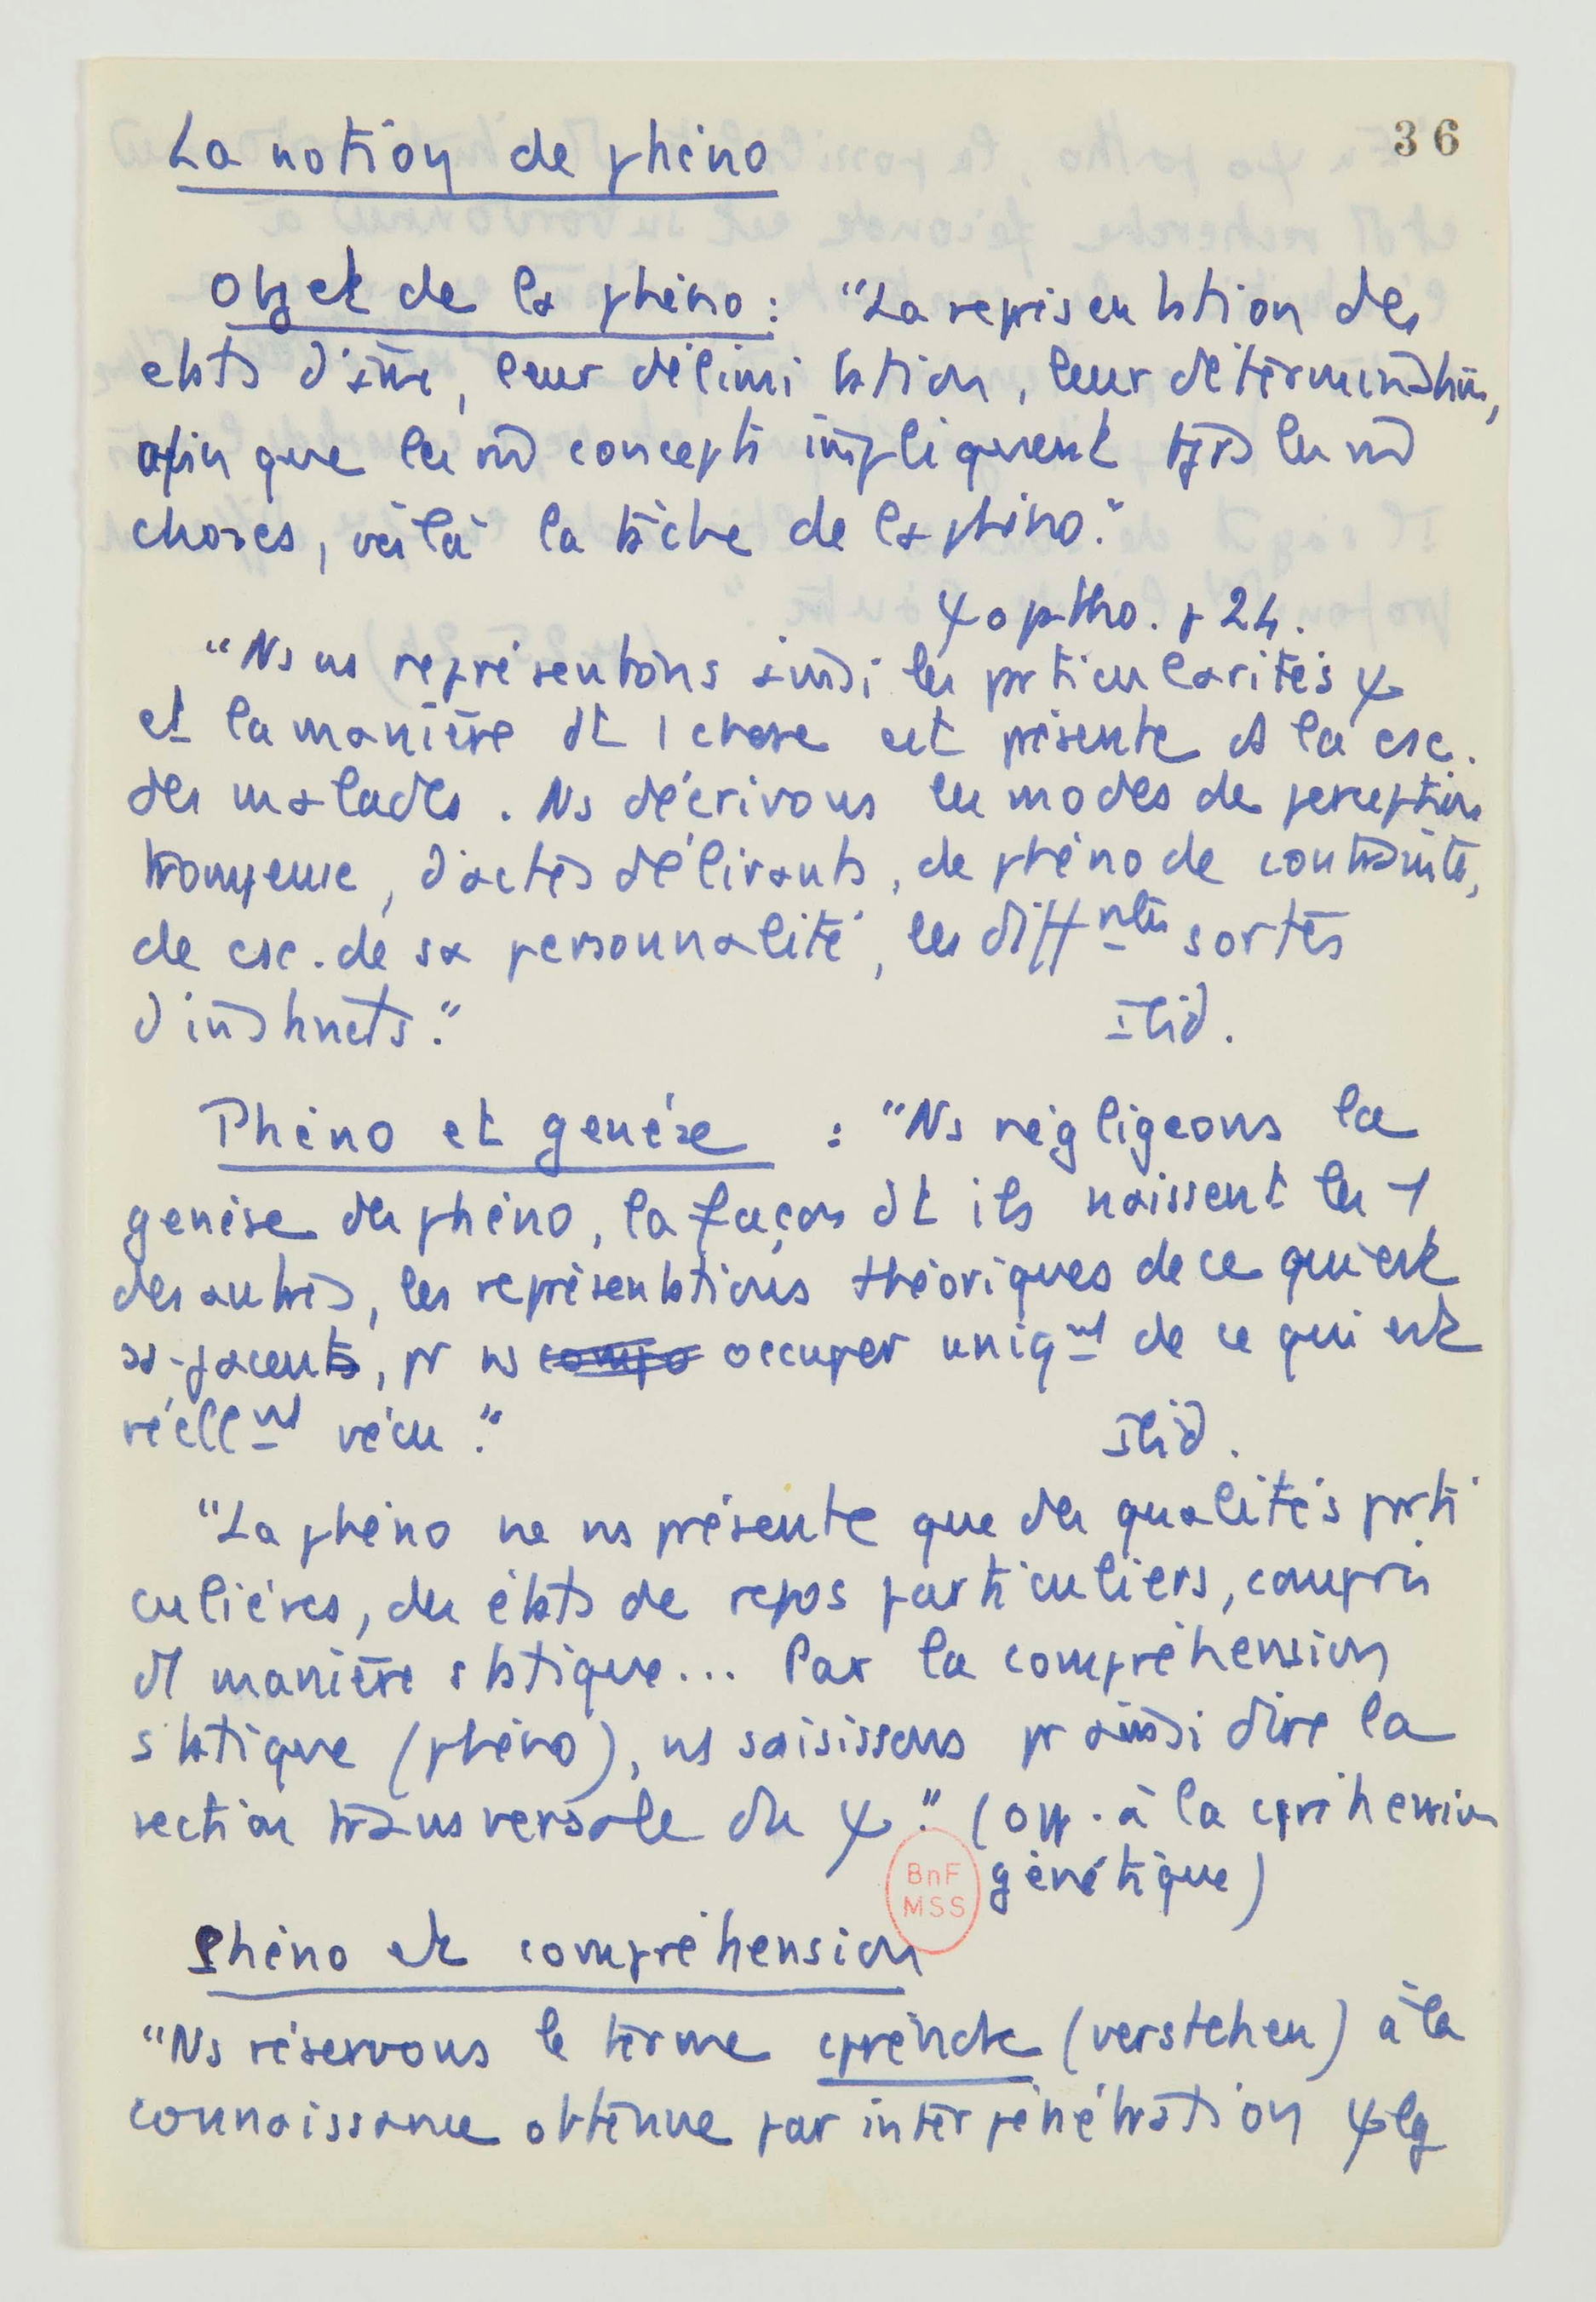 36
La notion de phéno
Objet de la phéno : "La représentation des
états d'âme, leur délimitation, leur détermination,
afin que les m̂ concepts impliquent tjrs les m̂
choses, voilà la tâche de la phéno."
ψopatho. p 24.
"Ns ns représentons ainsi les particularités ψ
et la manière dt 1 chose est présente ds la csc.
des malades. Ns décrivons les modes de perception
trompeuse, d'actes délirants, de phéno de contrainte,
de csc. de sa personnalité, les diffntes sortes
d'instincts."
Ibid.
Phéno et genèse : "Ns négligeons la
genèse des phéno, la façon dt ils naissent les 1
des autres, les représentations théoriques de ce qui est
ss-jacent, pr ns occuper uniqnt de ce qui est
réellnt vécu."
Ibid.
"La phéno ne ns présente que des qualités parti
culières, des états de repos particuliers, compris
d'1 manière statique... Par la compréhension
statique (phéno), ns saisissons pr ainsi dire la
section transversale du ψ." (opp. à la cpréhension
génétique)
BnF
MSS
Phéno et compréhension
"Ns réservons le terme cprendre (verstehen) à la
connaissance obtenue par interpénétration ψlg